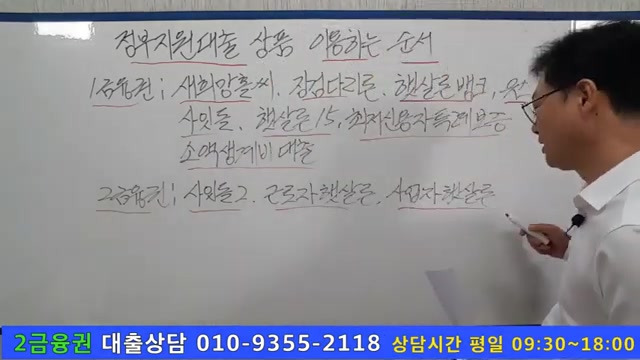 정부지원대출 상품 이용하는 순서
1금융권; 새희망홀씨. 징검다리론. 햇살론뱅크,
사잇돌. 햇살론15, 최저신용자특례보증
소액생계비대출
2금융권; 사잇돌2. 근로자햇살론, 사업자햇살론
2금융권 대출상담 010-9355-2118 상담시간 평일 09:30~18:00